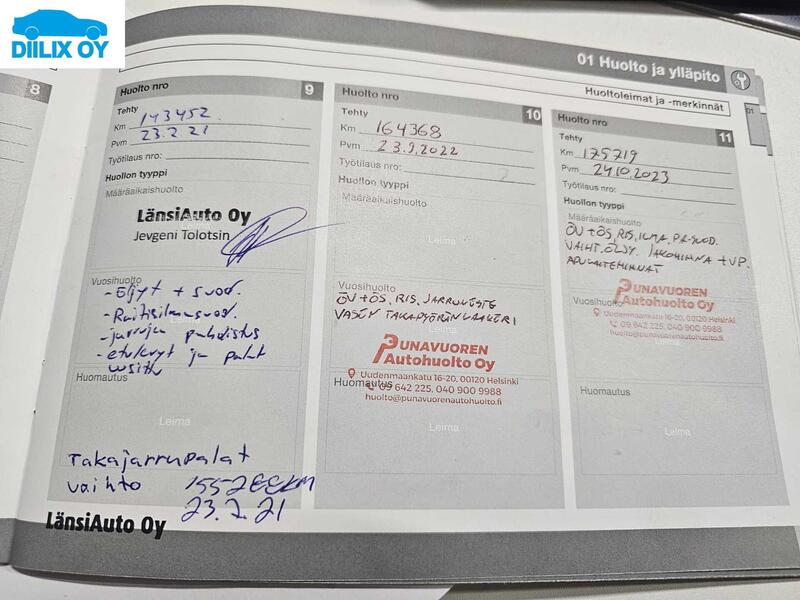 DIILIX OY
01 Huolto ja ylläpito
Huoltoleimat ja -merkinnät
01
8
Huolto nro 9
Tehty
Km 143452
Pvm 23.2 21
Työtilaus nro:
Huollon tyyppi
Määräaikaishuolto
LänsiAuto Oy
Jevgeni Tolotsin
Vuosihuolto
- Öljyt + suod.
- Raitisilmasuod.
- jarrujen puhdistus
- etulevyt ja palat
uusittu
Huomautus
Leima
Takajarrupalat
vaihto
23.2.21
LänsiAuto Oy
Huolto nro 10
Tehty
Km 164368
Pvm 23.9.2022
Työtilaus nro:
Huollon tyyppi
Määräaikaishuolto
Leima
Vuosihuolto
ÖV+ÖS, RIS, JARRUNESTE
VASEN TAKAPYÖRÄNLAAKERI
PUNAVUOREN
Autohuolto Oy
Uudenmaankatu 16-20, 00120 Helsinki
09 642 225, 040 900 9988
huolto@punavuorenautohuolto.fi
Huomautus
Leima
Huolto nro 11
Tehty
Km 175719
Pvm 24.10.2023
Työtilaus nro:
Huollon tyyppi
Määräaikaishuolto
ÖV+ÖS, RIS, ILMA, PA-SUOD.
VAIHT. ÖLJY. JAKOHIHNA + VP.
APULAITEHIHNAT
Vuosihuolto
PUNAVUOREN
Autohuolto Oy
Uudenmaankatu 16-20, 00120 Helsinki
09 642 225, 040 900 9988
huolto@punavuorenautohuolto.fi
Huomautus
Leima